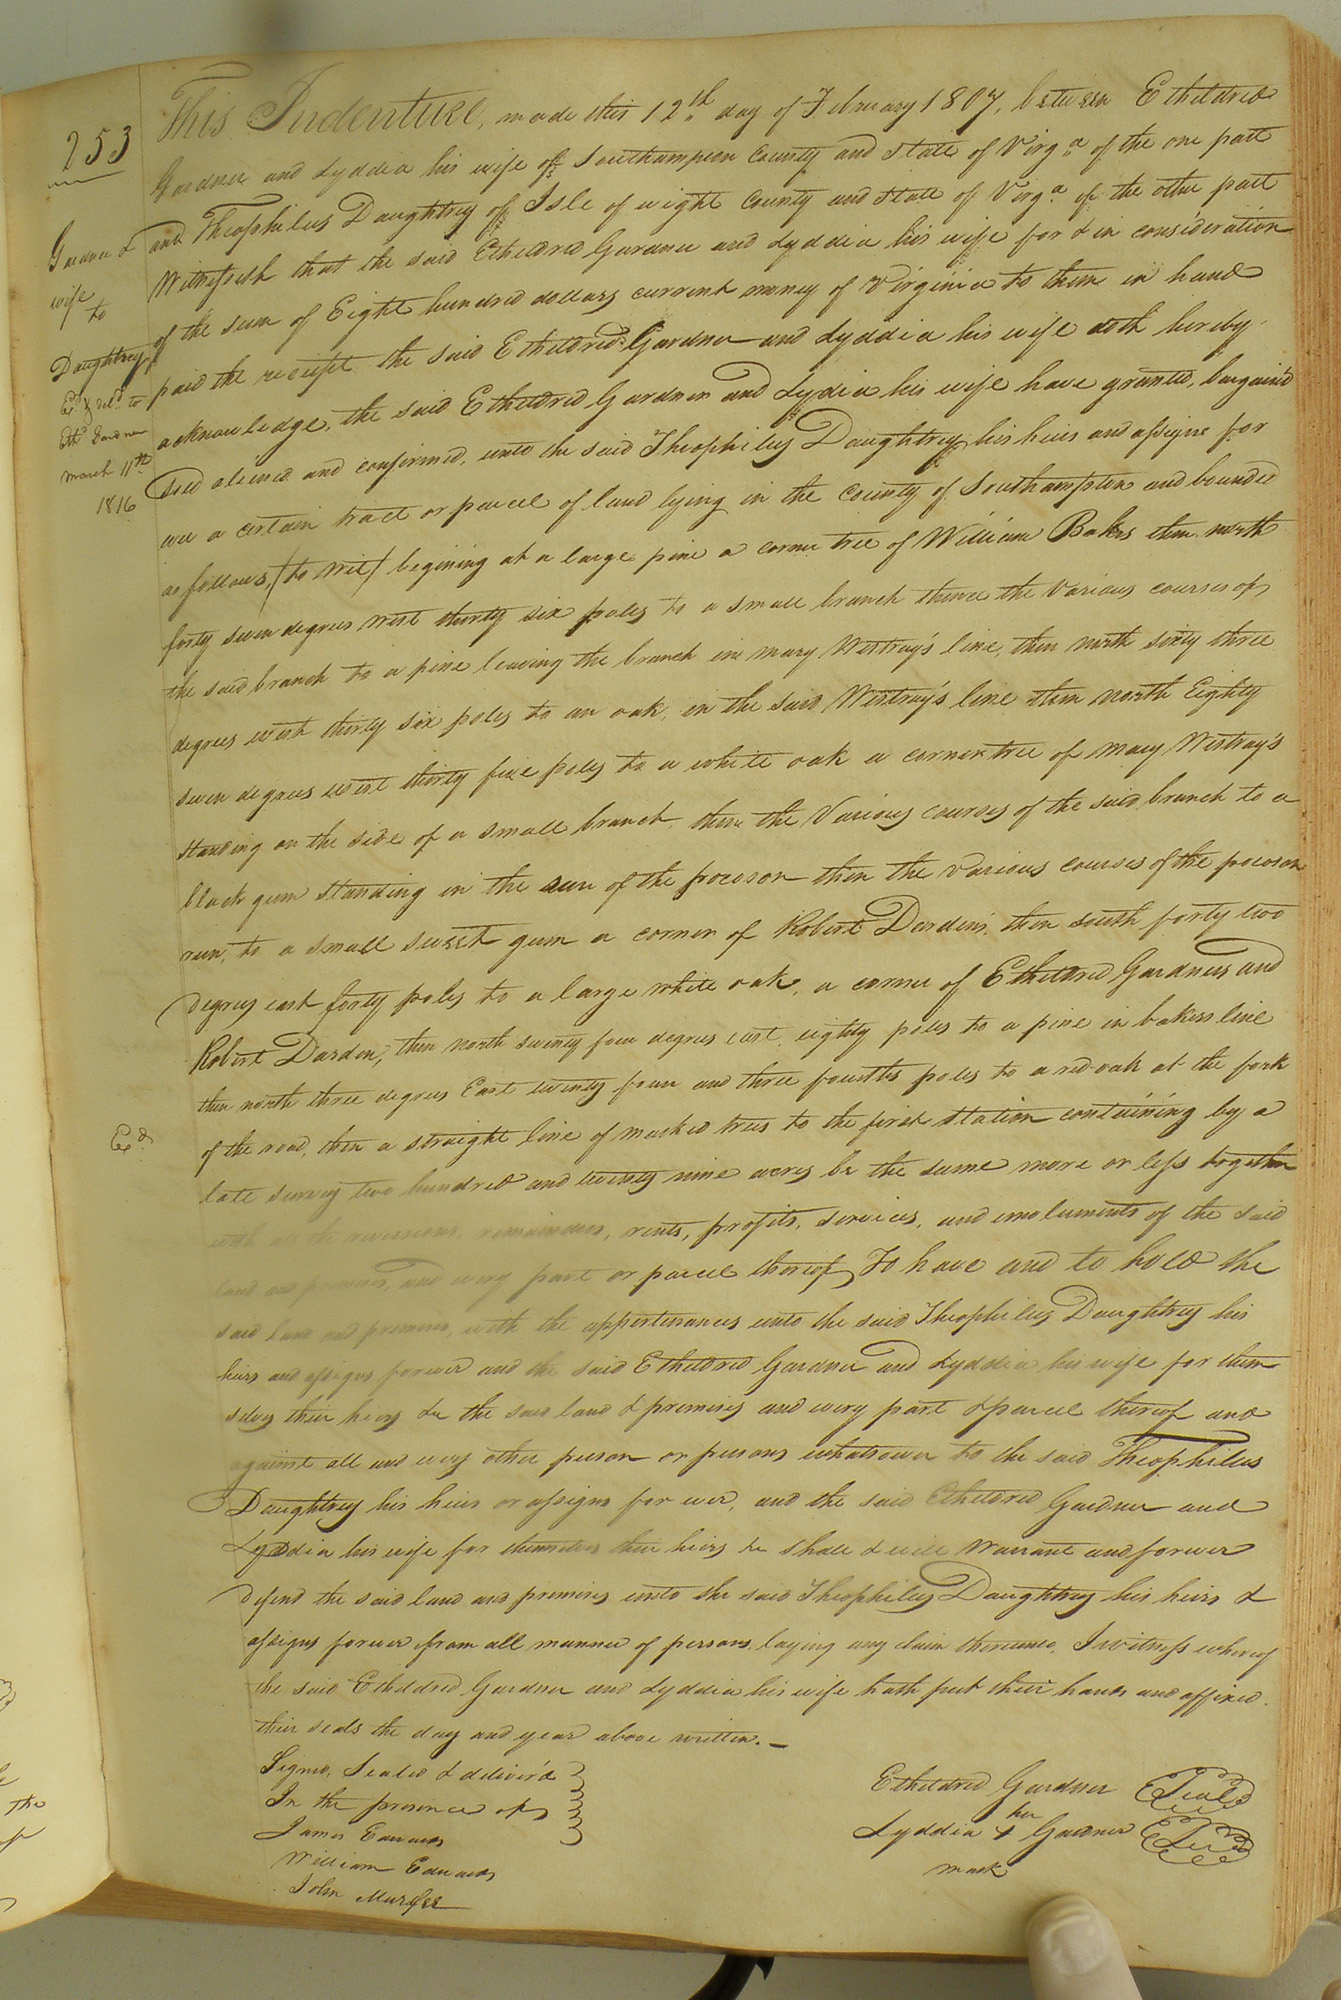 253
Gardner &
wife
to
Daughtrey
Ex.d & del.d to
Eth.d Gardner
March 11th
1816
This Indenture, made this 12th day of February 1807, between Etheldred
Gardner and Lyddia his wife of Southampton County and State of Virg.a of the one part
and Theophilus Daughtrey of Isle of wight County and State of Virg.a of the other part
Witnesseth that the said Etheldred Gardner and Lyddia his wife for & in consideration
of the sum of Eight hundred dollars current money of Virginia to them in hand
paid the receipt the said Etheldred Gardner and Lyddia his wife doth hereby
acknowledge, the said Etheldred Gardner and Lyddia his wife have granted, bargain'd
Sold aliened and confirmed, unto the said Theophilus Daughtrey his heirs and assigns for
ever a certain tract or parcel of land lying in the County of Southampton and bounded
as follows, (to Wit) begining at a large pine a corner tree of William Bakers then north
forty seven degrees west thirty six poles to a small branch thence the Various courses of
the said branch to a pine leaving the branch in mary Westray's line, then north sixty three
degrees west thirty six poles to an oak, in the said Westray's line then north Eighty
seven degrees west thirty five poles to a white oak a corner tree of mary Westray's
standing on the side of a small branch then the Various courses of the said branch to a
black gum standing in the run of the pocoson then the various courses of the pocoson
run, to a small sweet gum a corner of Robert Darden's, then south forty two
degrees east forty poles to a large white oak, a corner of Etheldred Gardners and
Robert Darden, then north seventy four degrees east eighty poles to a pine in bakers line
then north three degrees East twenty four and three fourths poles to a red oak at the fork
of the road, then a straight line of marked trees to the first station containing by a
Ex.d
late survey two hundred and twenty nine acres be the same more or less together
with all the reversions, remainders, rents, profits, services, and emoluments of the said
land and premises, and every part or parcel thereof, To have and to hold the
said land and premises, with the appertinances unto the said Theophilus Daughtrey his
heirs and assigns forever and the said Etheldred Gardner and Lyddia his wife for them
selves their heirs &c the said land & premises and every part & parcel thereof and
against all and every other person or persons whatsoever to the said Theophilus
Daughtrey his heirs or assigns for ever, and the said Etheldred Gardner and
Lyddia his wife for themselves their heirs &c shall & will Warrant and forever
defend the said land and premises unto the said Theophilus Daughtrey his heirs &
assigns forever from all manner of persons laying any claim thereunto, I witness whereof
the said Etheldred Gardner and Lyddia his wife hath put their hands and affixed
their seals the day and year above written.
Signed, Sealed & deliver'd
In the presence of
James Edwards
William Edwards
John Murfee
Etheldred Gardner Seal
her
Lyddia + Gardner Seal
mark